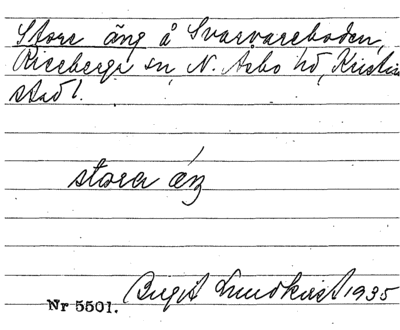 Stora äng å Svarvareboden,
Riseberga sn, N. Åsbo hd, Kristian
stad l.
stora äŋ
Nr 5501. Birgit Lundkvist 1935